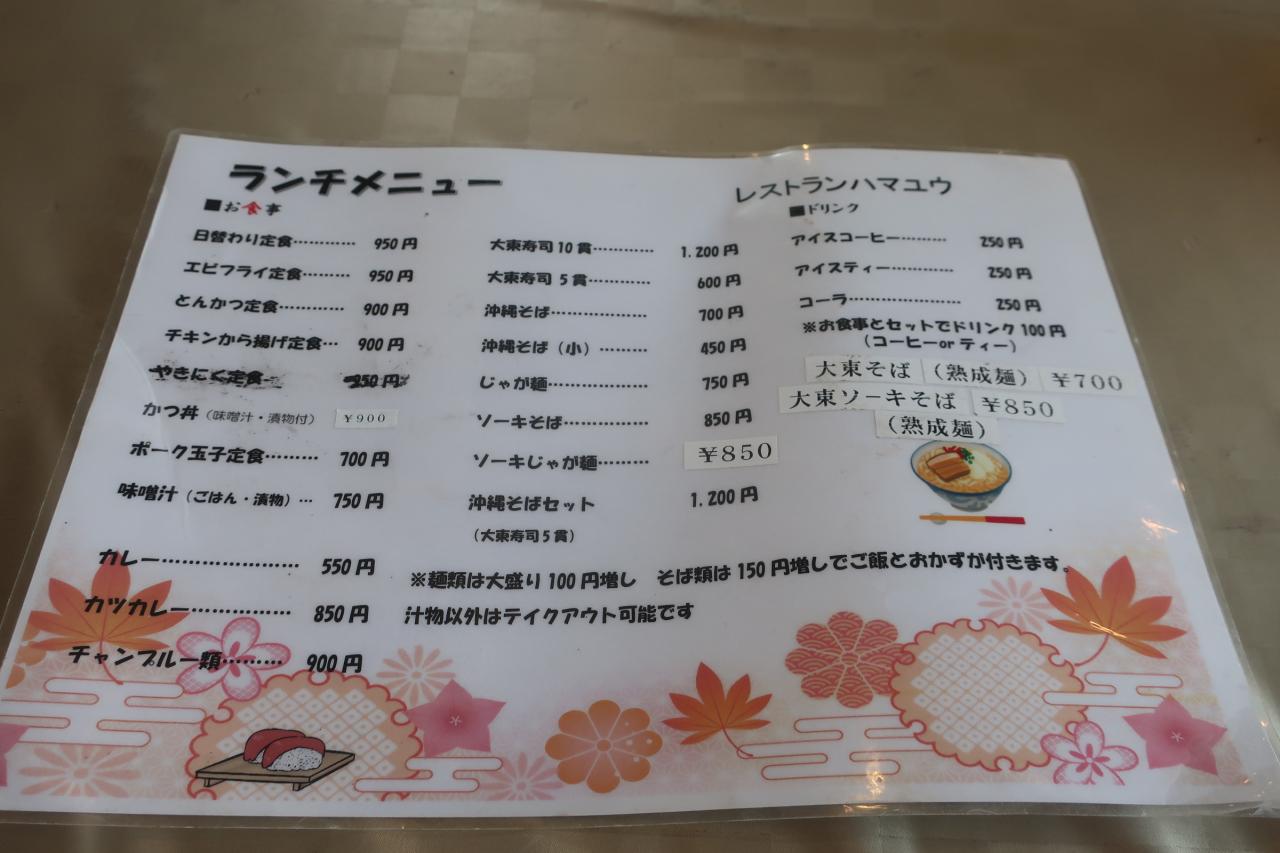 ランチメニュー
■お食事
日替わり定食………… 950円
エビフライ定食……… 950円
とんかつ定食………… 900円
チキンから揚げ定食… 900円
やきにく定食… 950円
かつ丼（味噌汁・漬物付） ¥900
ポーク玉子定食……… 700円
味噌汁（ごはん・漬物）… 750円
カレー…………………… 550円
カツカレー…………… 850円
チャンプルー類……… 900円
大東寿司10貫………… 1.200円
大東寿司 5貫………… 600円
沖縄そば……………… 700円
沖縄そば（小）……… 450円
じゃが麺……………… 750円
ソーキそば…………… 850円
ソーキじゃが麺……… ¥850
沖縄そばセット 1.200円
（大東寿司5貫）
レストランハマユウ
■ドリンク
アイスコーヒー……… 250円
アイスティー………… 250円
コーラ………………… 250円
※お食事とセットでドリンク100円
（コーヒーorティー）
大東そば （熟成麺） ¥700
大東ソーキそば ¥850
（熟成麺）
※麺類は大盛り100円増し　そば類は150円増しでご飯とおかずが付きます。
汁物以外はテイクアウト可能です